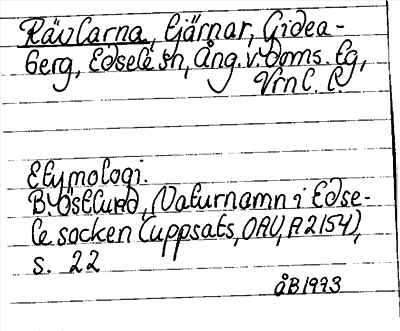 Rävlarna, tjärnar, Gidea-
berg, Edsele sn, Ång. v. Doms. lg,
Vrnl. l.
Etymologi.
B. Östlund, Naturnamn i Edse-
le socken (uppsats, OAU, A 2154),
s. 22
åB1973